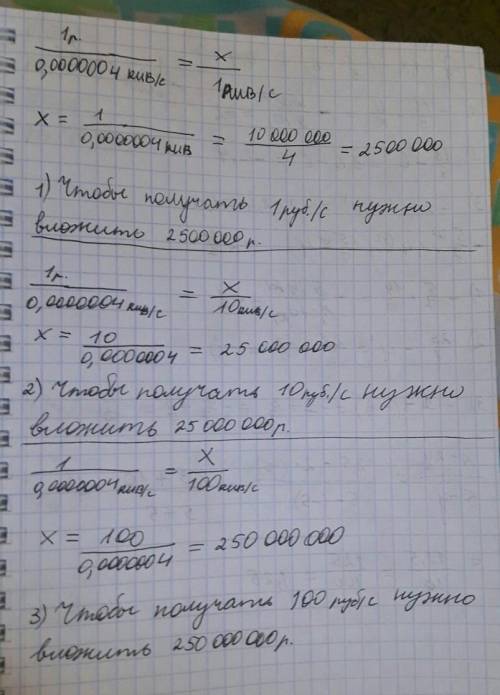 1р. / 0,0000004 кив/с = x / 1кив/с
x = 1 / 0,0000004 кив = 10 000 000 / 4 = 2500 000
1) Чтобы получать 1руб./с нужно
вложить 2500 000 р.
1р. / 0,0000004 кив/с = x / 10кив/с
x = 10 / 0,0000004 = 25 000 000
2) Чтобы получать 10 руб./с нужно
вложить 25 000 000р.
1 / 0,0000004 кив/с = x / 100кив/с
x = 100 / 0,0000004 = 250 000 000
3) Чтобы получать 100 руб/с нужно
вложить 250 000 000р.